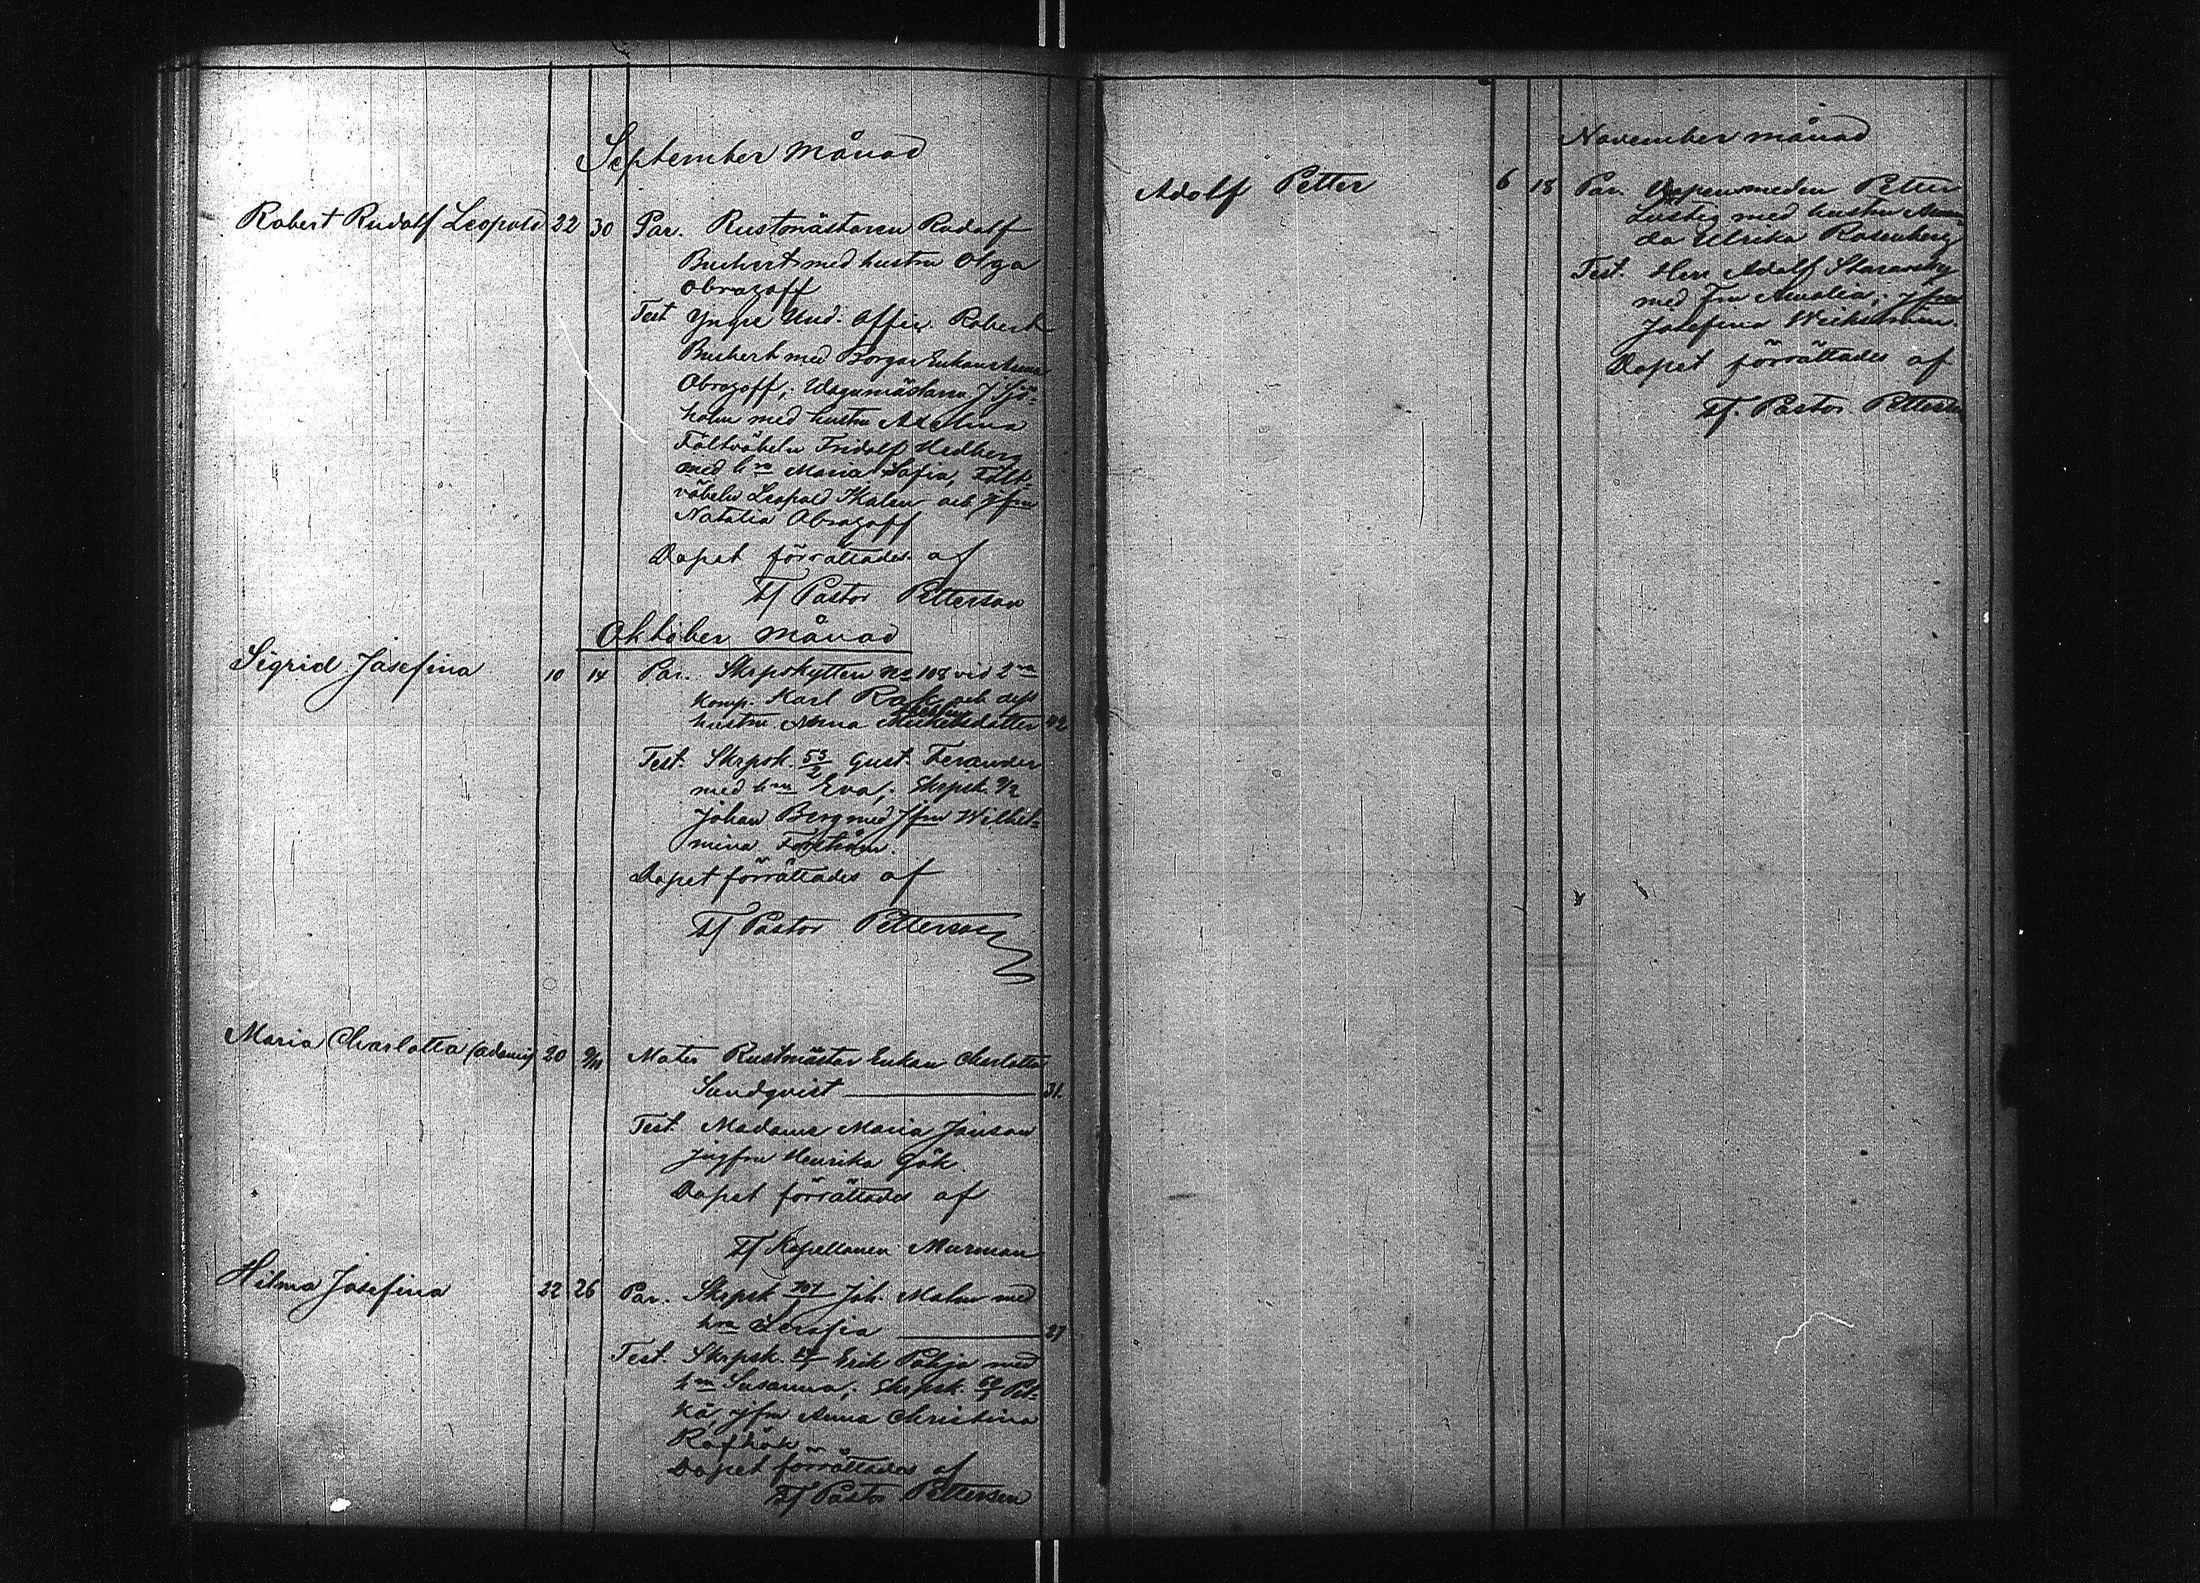 September månad
Robert Rudolf Leopold 22 30 Par. Rustmästaren Rudolf
Buchert med hustru Olga
Obrazoff
Test Yngre Und. Offic. Robert
Buchert med Borgar Enkan Anna
Obrazoff; Wagnmästaren J Sjö-
holm med hustru Axelina
Fältväbeln Fridolf Hedberg
med h:ru Maria Sofia, Fält-
väbeln Leopold Malm och Jfru
Natalia Obrazoff
Dopet förrättades af
Tf Pastor Petterson
Oktober månad
Sigrid Josefina 10 14 Par. Skrpskytten No 108 vid 2:ra
Komp. Karl Rask och dess
hustru Anna Michelsdotter 42
Test. Skrpsk. 53/2 Gust. Ferander
med h:ru Eva; Skrpsk. 9/2
Johan Berg med Jfru Wilhel-
mina Forström.
Dopet förrättades af
Tf Pastor Petterson
Maria Charlotta 20 9/11 Mater Rustmästar Enkan Charlotta
Sundqvist 31.
Test. Madame Maria Jönson
jugfru Henrika Gök.
Dopet förrättades af
Tf Kapellanen Murman
Hilma Josefina 22 26 Par. Skrpsk Joh. Malm med
hru Serafia 27
Test. Skrpsk. Erik Pohja med
h:ru Susanna; Skrpsk. Pit-
kä, jfru Anna Christina
Rofhök
Dopet förrättades af
Tf Pastor Petterson
November månad
Adolf Petter 6 18 Par. Petter
Lustig med hustru Aman-
da Ulrika Rosenberg
Test. Herr Adolf Staransky
med Fru Amalia; jfru
Josefina
Dopet förrättades af
Tf. Pastor Petterson